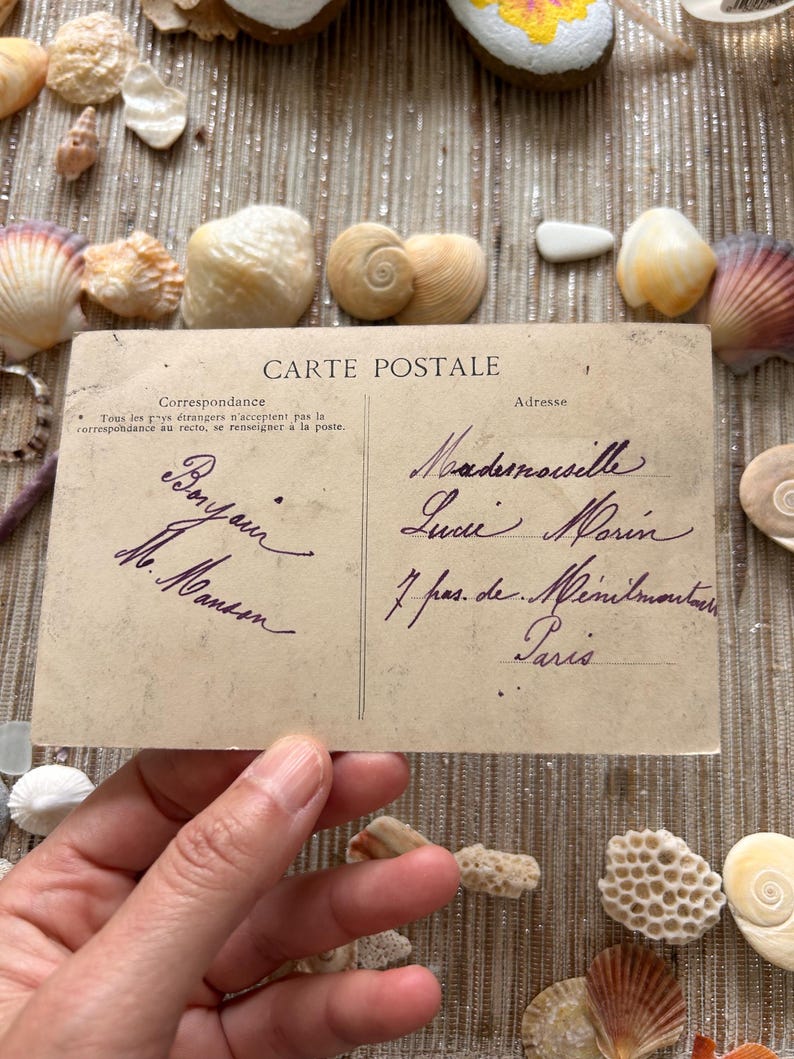 CARTE POSTALE
Correspondance
Tous les pays étrangers n'acceptent pas la
correspondance au recto, se renseigner à la poste.
Bonjour
M. Manson
Adresse
Mademoiselle
Lucie Morin
7 pas. de Ménilmontant
Paris